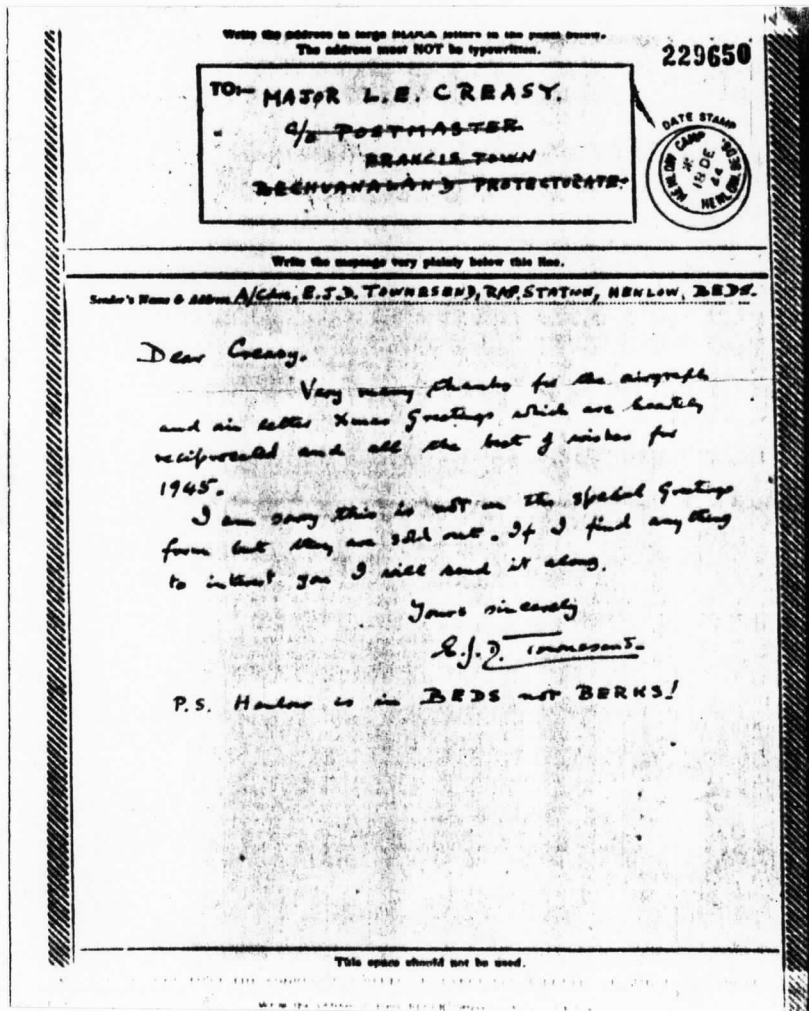 Write the address in large BLOCK letters in the panel below.
The address must NOT be typewritten.
229650
TO:— MAJOR L.E. CREASY.
c/o POSTMASTER
FRANCIS TOWN
BECHUANALAND PROTECTORATE.
DATE STAMP
HENLOW CAMP
18 DE
44
HENLOW, BEDS
Write the message very plainly below this line.
Sender's Name & Address A/Cdre, E.J.D. TOWNESEND, RAF STATION, HENLOW, BEDS.
Dear Creasy.
Very many thanks for the airgraph
and air letter Xmas Greetings which are heartily
reciprocated and all the best of wishes for
1945.
I am sorry this is not on the special Greetings
form but they are sold out. If I find anything
to interest you I will send it along.
Yours sincerely
E.J.D. Townesend.
P.S. Henlow is in BEDS not BERKS!
This space should not be used.